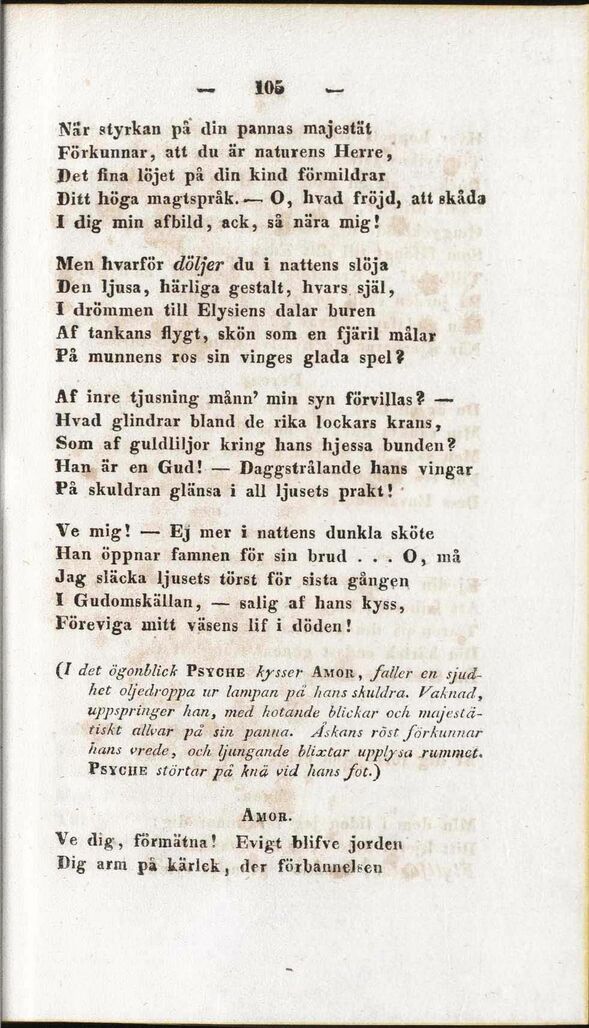 — 105 —
När styrkan på din pannas majestät
Förkunnar, att du är naturens Herre,
Det fina löjet på din kind förmildrar
Ditt höga magtspråk. — O, hvad fröjd, att skåda
I dig min afbild, ack, så nära mig!
Men hvarför döljer du i nattens slöja
Den ljusa, härliga gestalt, hvars själ,
I drömmen till Elysiens dalar buren
Af tankans flygt, skön som en fjäril målar
På munnens ros sin vinges glada spel?
Af inre tjusning månn' min syn förvillas? —
Hvad glindrar bland de rika lockars krans,
Som af guldliljor kring hans hjessa bunden?
Han är en Gud! — Daggstrålande hans vingar
På skuldran glänsa i all ljusets prakt!
Ve mig! — Ej mer i nattens dunkla sköte
Han öppnar famnen för sin brud . . . O, må
Jag släcka ljusets törst för sista gången
I Gudomskällan, — salig af hans kyss,
Föreviga mitt väsens lif i döden!
(I det ögonblick PSYCHE kysser AMOR, faller en sjud-
het oljedroppa ur lampan på hans skuldra. Vaknad,
uppspringer han, med hotande blickar och majestä-
tiskt allvar på sin panna. Åskans röst förkunnar
hans vrede, och ljungande blixtar upplysa rummet.
PSYCHE störtar på knä vid hans fot.)
AMOR.
Ve dig, förmätna! Evigt blifve jorden
Dig arm på kärlek, der förbannelsen